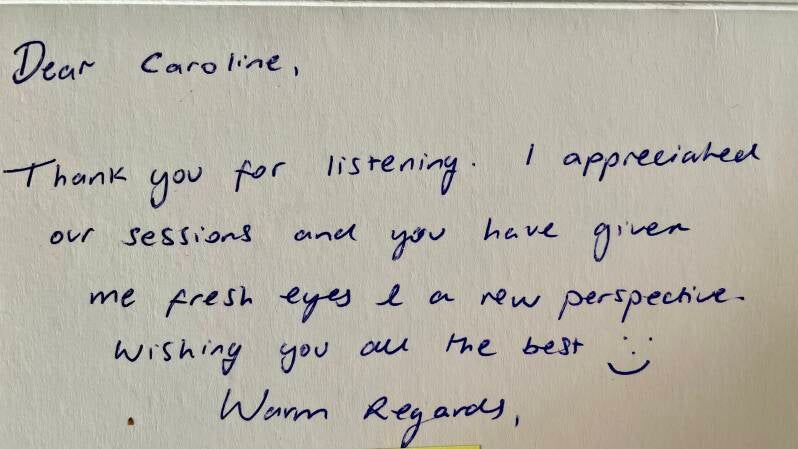 Dear Caroline,
Thank you for listening. I appreciated
our sessions and you have given
me fresh eyes & a new perspective.
Wishing you all the best :)
Warm Regards,